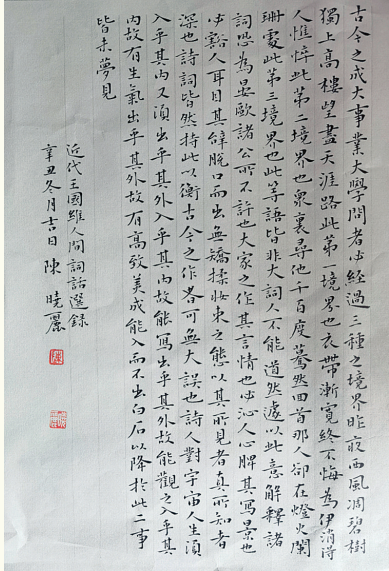 古今之成大事業大學問者必經過三種之境界昨夜西風凋碧樹
獨上高樓望盡天涯路此第一境界也衣帶漸寬終不悔為伊消得
人憔悴此第二境界也眾裏尋他千百度驀然回首那人卻在燈火闌
珊處此第三境界也此等語皆非大詞人不能道然遽以此意解釋諸
詞恐為晏歐諸公所不許也大家之作其言情也必沁人心脾其寫景也
必豁人耳目其辭脫口而出無矯揉妝束之態以其所見者真所知者
深也詩詞皆然持此以衡古今之作者可無大誤也詩人對宇宙人生須
入乎其內又須出乎其外入乎其內故能寫出乎其外故能觀之入乎其
內故有生氣出乎其外故有高致美成能入而不出白石以降於此二事
皆未夢見
近代王國維人間詞話選錄
辛丑冬月吉日 陳曉麗